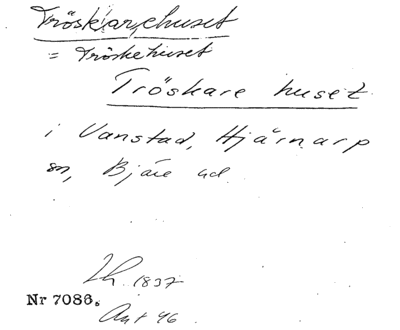 Tröskarehuset
= Tröskehuset
Tröskare huset
i Vanstad, Hjärnarp
sn, Bjäre hd
Lh. 1837
Nr 7086.
Ant 46